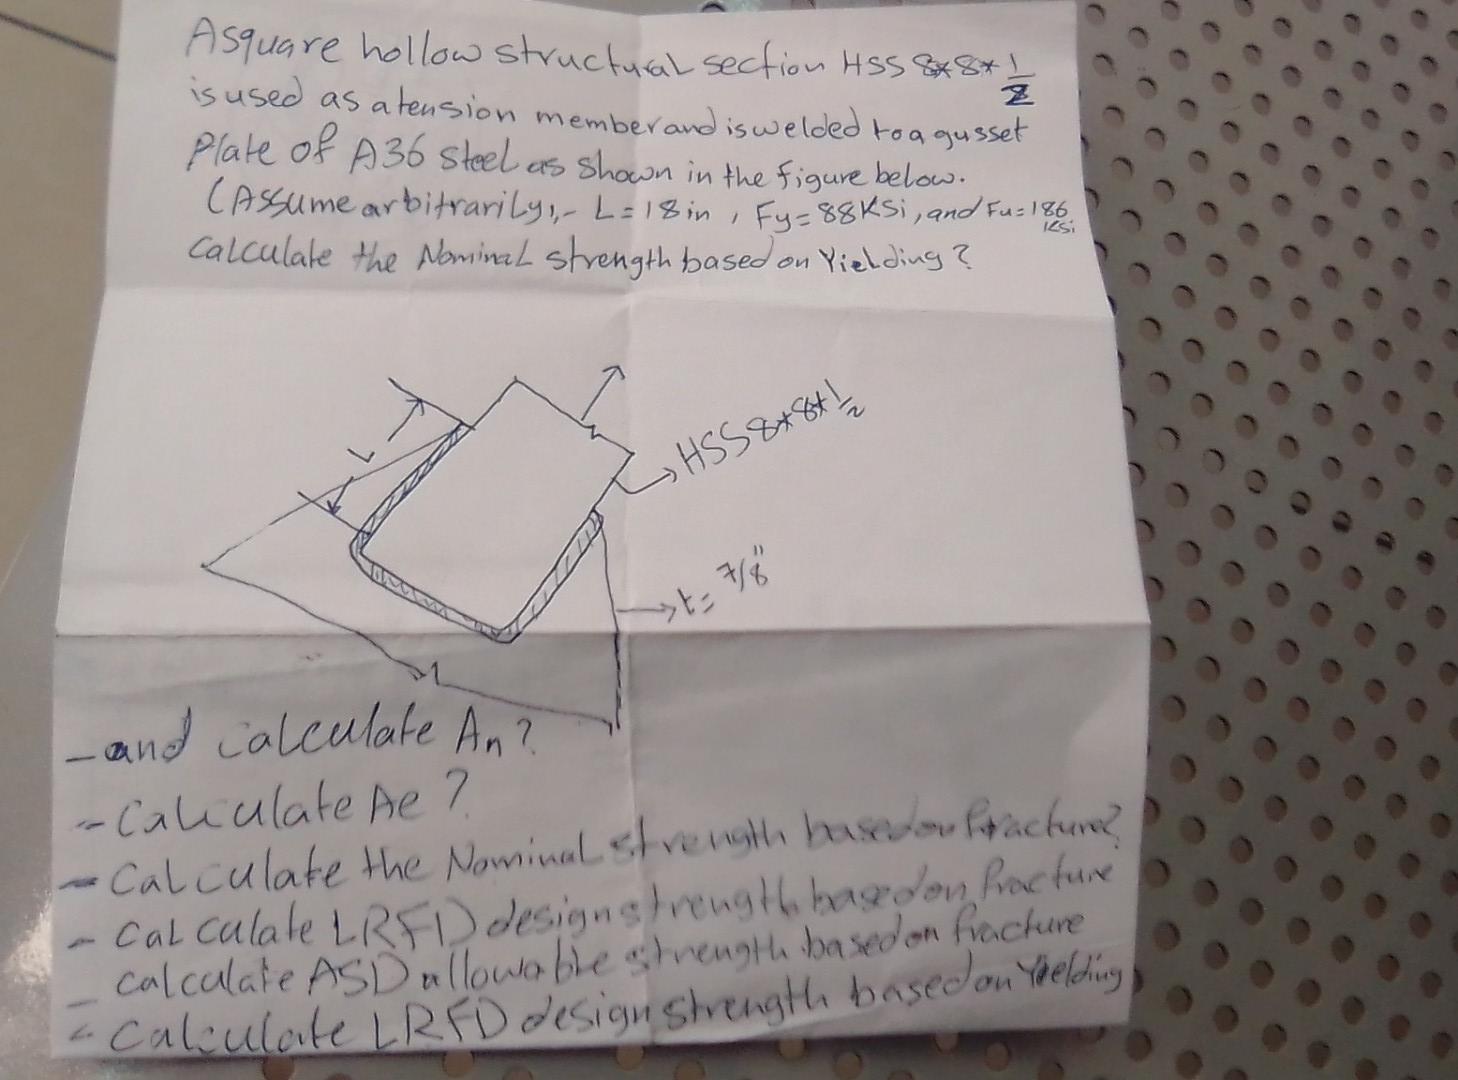 A square hollow structural section HSS 8*8*1/2
is used as a tension member and is welded to a gusset
Plate of A36 steel as shown in the figure below.
(Assume arbitrarily,- L=18in, Fy=88Ksi, and Fu=186 Ksi
Calculate the Nominal strength based on Yielding?
L
HSS 8*8*1/2
t= 7/8"
- and calculate An?
- Calculate Ae?
- Calculate the Nominal strength based on fracture?
- Calculate LRFD design strength based on fracture
- calculate ASD allowable strength based on fracture
- Calculate LRFD design strength based on Yielding